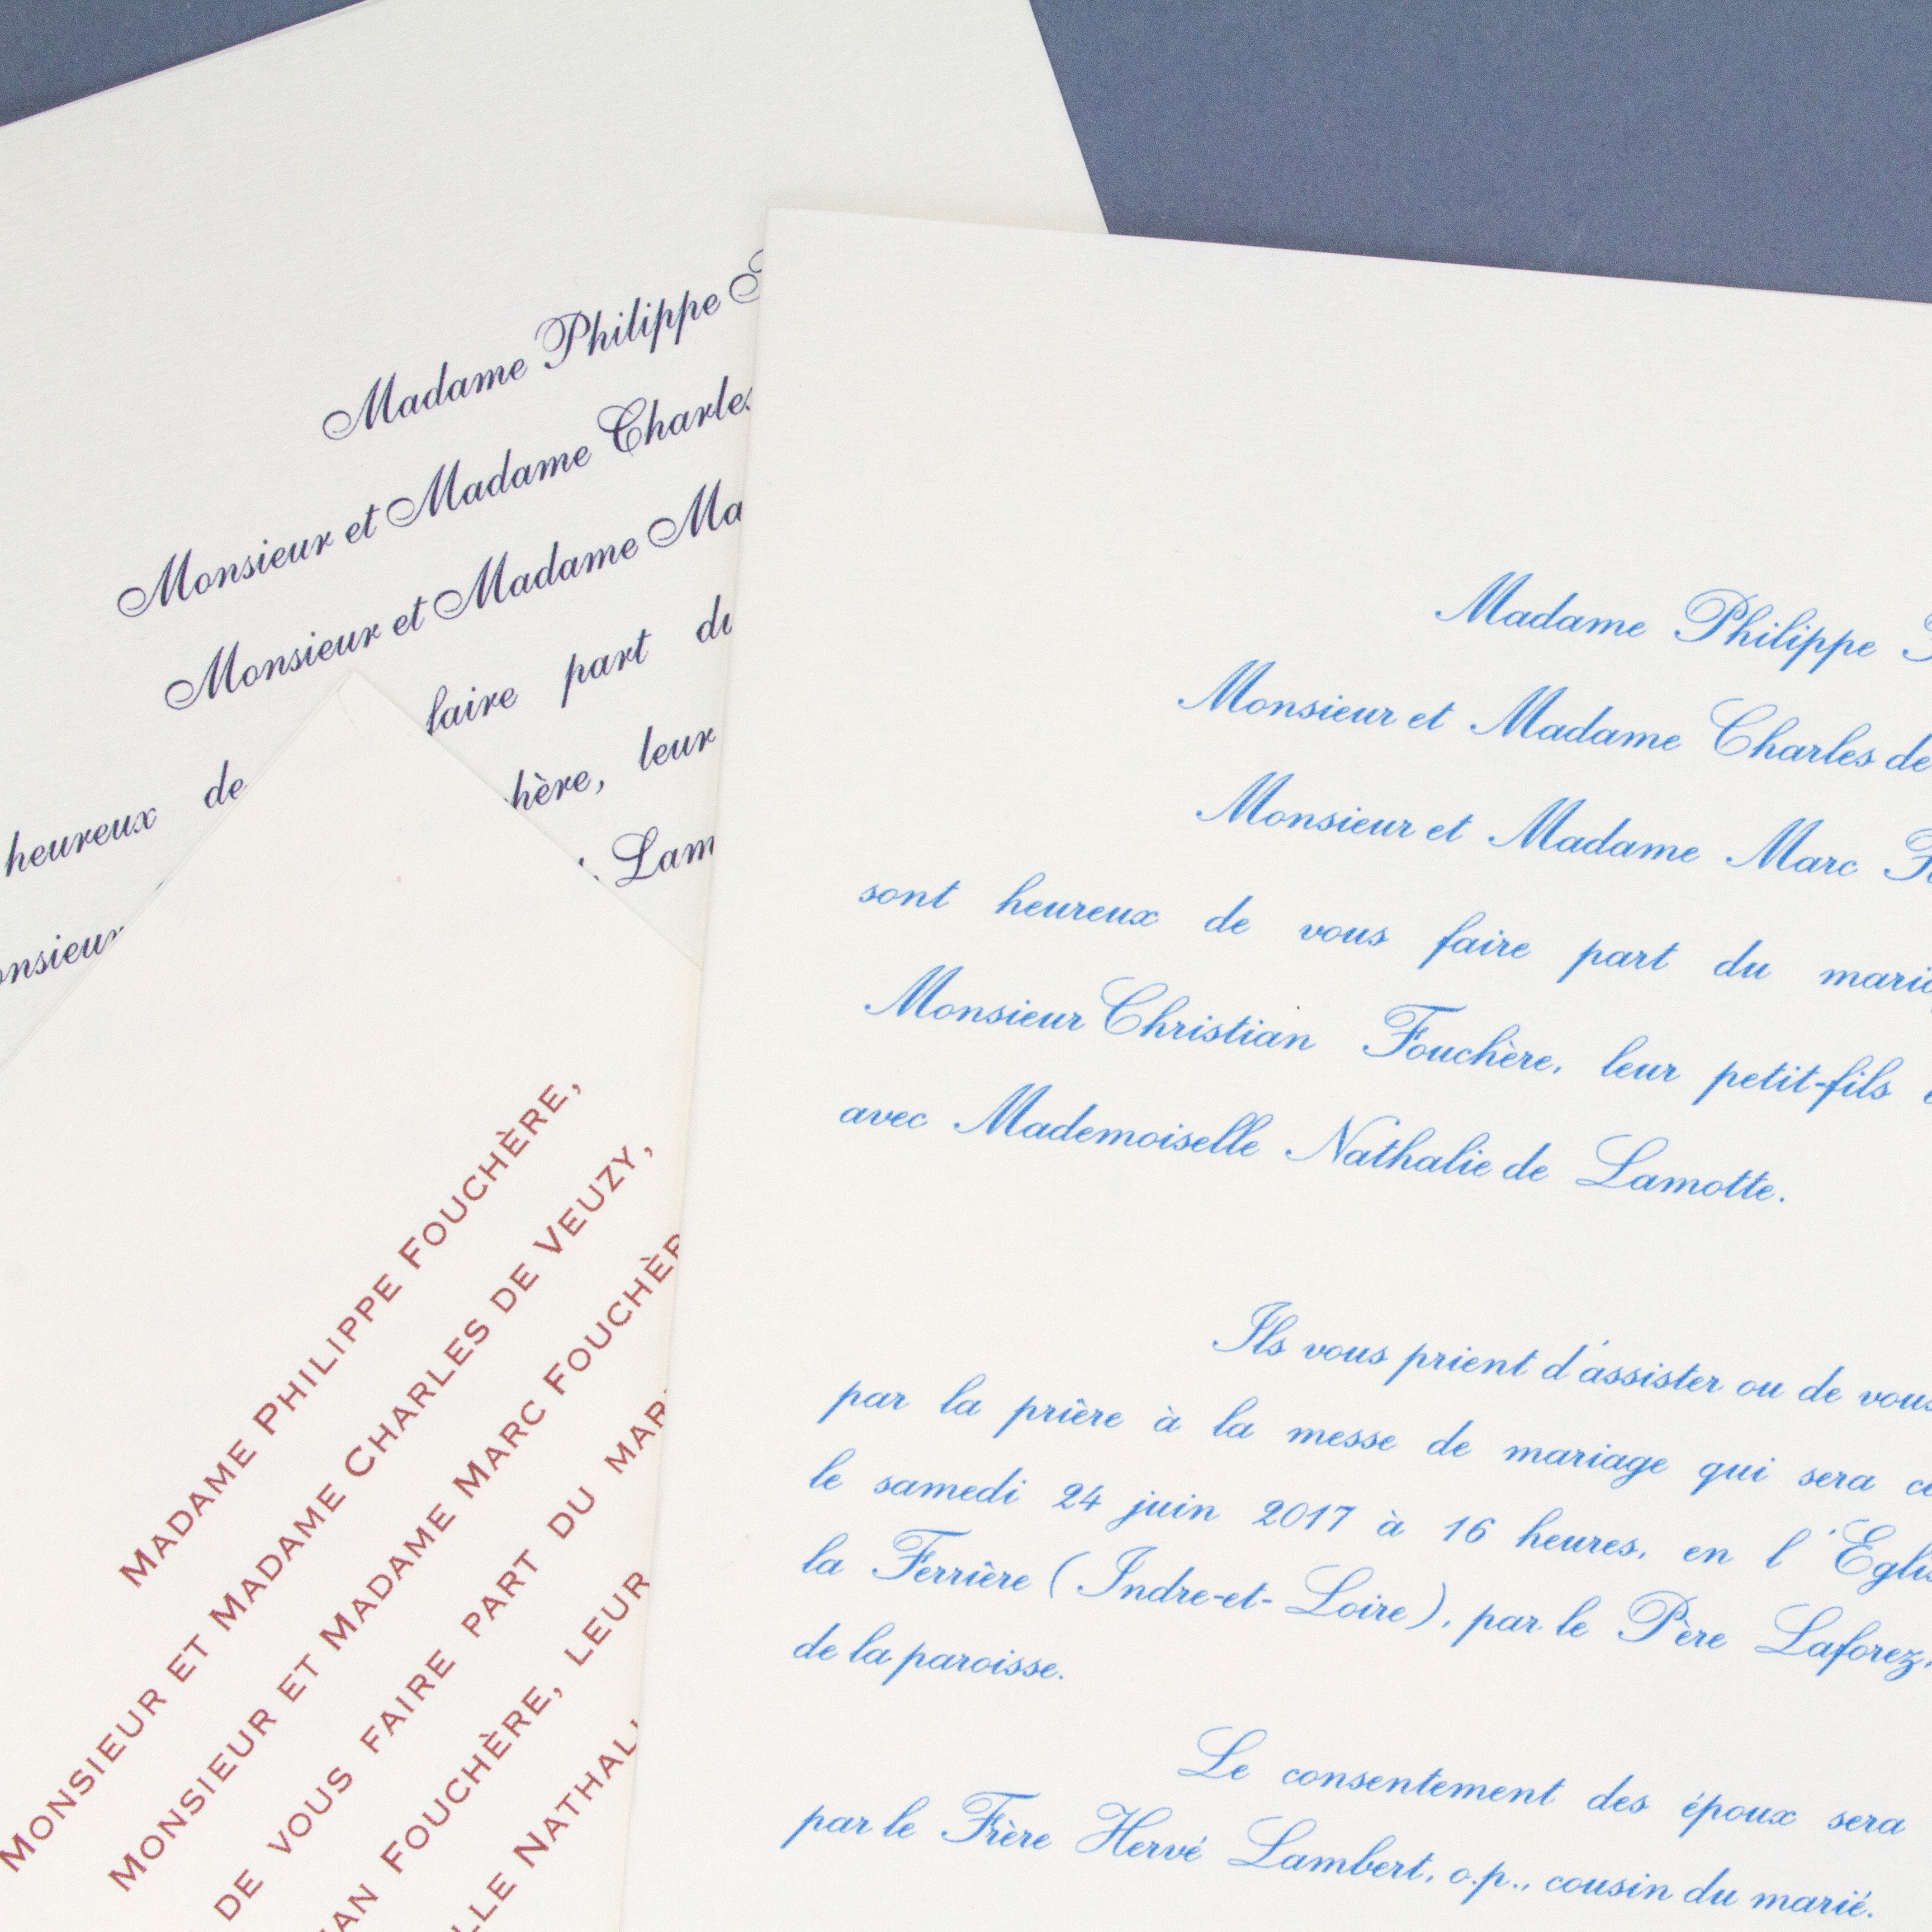 Madame Philippe
Monsieur et Madame Charles
Monsieur et Madame
faire part du
heureux de
leur
Madame Philippe
Monsieur et Madame Charles de
Monsieur et Madame Marc
sont heureux de vous faire part du
Monsieur Christian Fouchère, leur petit-fils
avec Mademoiselle Nathalie de Lamotte.
Ils vous prient d'assister ou de vous
par la prière à la messe de mariage qui sera
le samedi 24 juin 2017 à 16 heures, en l'
la Ferrière (Indre-et-Loire), par le Père Laforez,
de la paroisse.
Le consentement des époux sera
par le Frère Hervé Lambert, o.p., cousin du marié.
MADAME PHILIPPE FOUCHÈRE,
MONSIEUR ET MADAME CHARLES DE VEUZY,
MONSIEUR ET MADAME MARC
DE VOUS FAIRE PART DU
FOUCHÈRE, LEUR